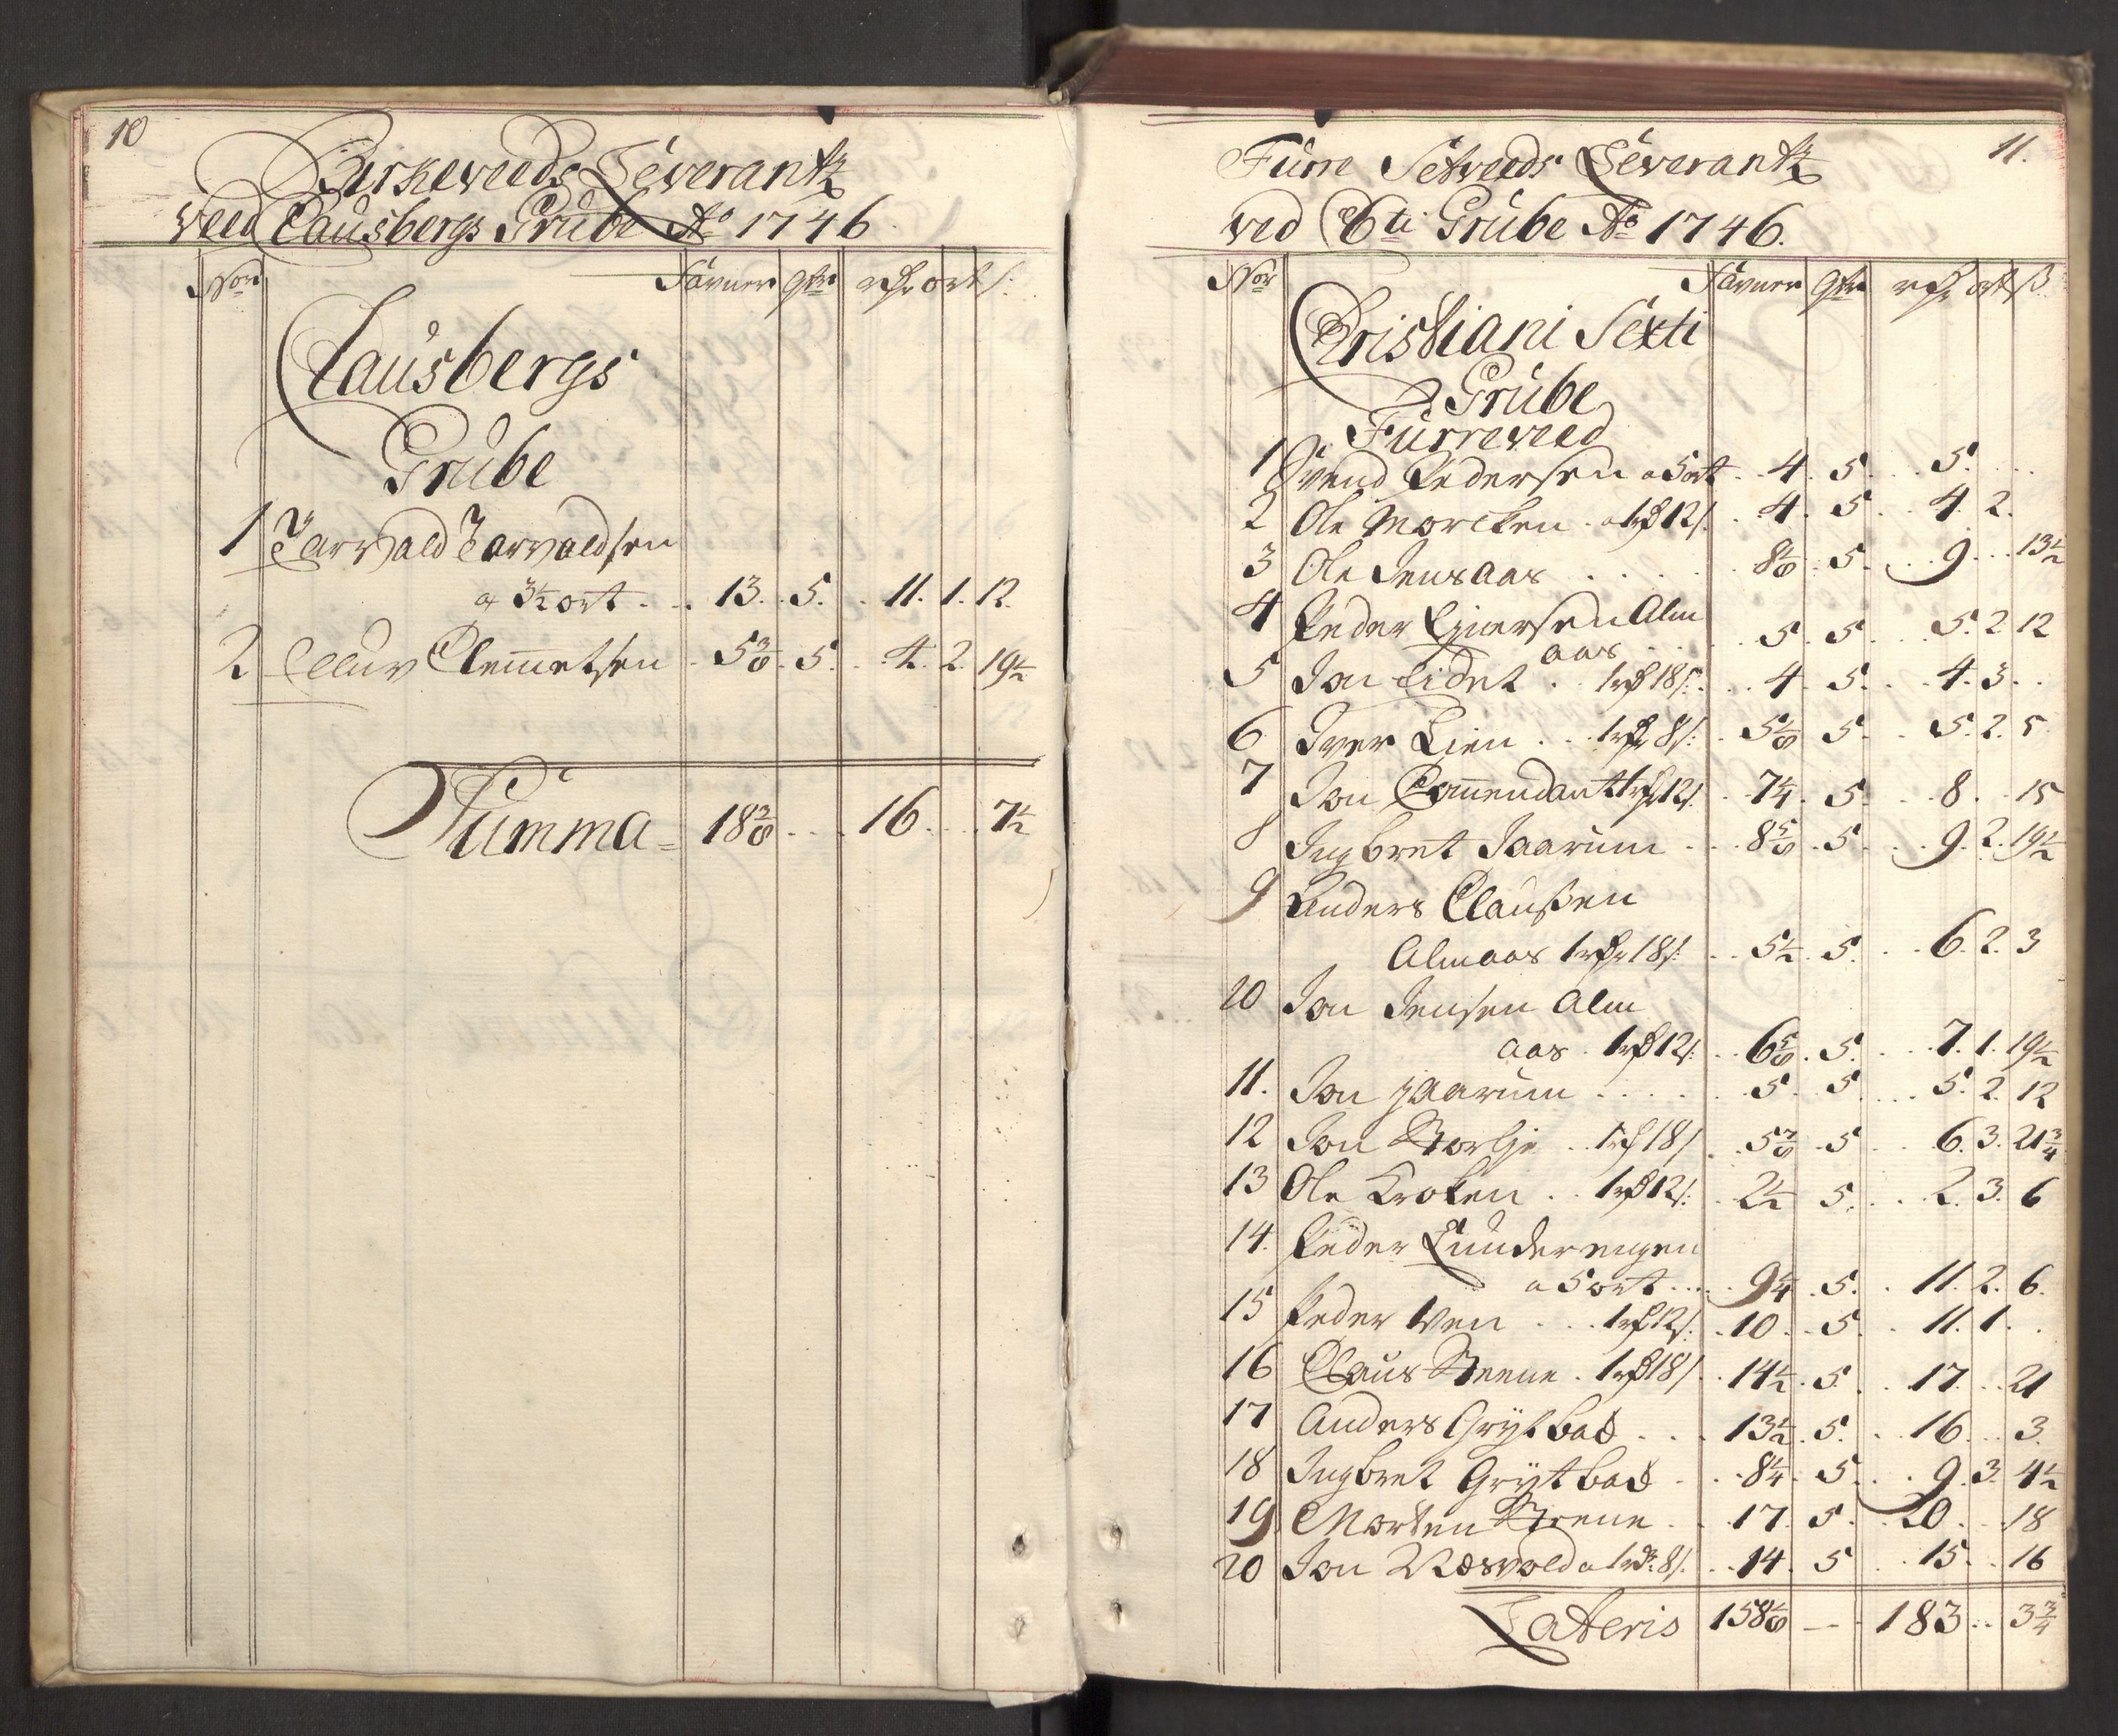 10
Birkeveeds Leverantz
veed Clausbergs Grube Ao 1746
No Favner qtr rdr ort s:
Clausbergs
Grube
1 Tarvald Tarvaldsen
a 3½ ort . . 13. . 5. . 11. 1. 12.
2 Clemmetsen . 5 3/8 . 5. . 4. 2. 19½
Summa = 18 3/8 . . . 16 . . . 7½
11.
Furre Setveeds Leverantz
ved C 6ti Grube Ao 1746.
No Favner qtr rdr ort s
Christiani Sexti
Grube
Furreveed
1 Svend Pedersen a 5 ort . . 4 . 5 . . . 5. . .
2 Ole Morcken . a 1 rd 12 s . . 4 . 5 . . 4. 2.
3 Ole Jensaas . . . . . 8 1/8 . 5. . . 9 . . . 13½
4 Peder Ejversen Alm
aas . . . 5 . 5 . . . 5. 2 12
5 Jon Eidet . . 1 rd 18 s: . . 4 . 5. . . 4. 3 . .
6 Iver Lien . . . 1 rdr 8 s: . 5 1/8 5. . . 5. 2. 5
7 Jon Commendant 1 rdr 12 s. . 7¼ . 5 . . . 8 . . 15
8 Ingbret Jaarum . . . 8 5/8 . 5 . . . 9. 2. 19½
9 Anders Claussen
Almaas 1 rdr 18 s: . . 5½ . 5. . . 6. 2. 3
10 Jon Jensen Alm
aas . 1 rd 12 s: . . 6 5/8 . 5. . . . 7. 1. 19½
11. Jon Jaarum . . . . . 5 . 5 . . . 5. 2. 12
12 Jon Storlje . . 1 rd 18 s . . 5 7/8 . 5 . . 6. 3. 21¾
13 Ole Kroken . . 1 rd 12 s: . 2½ 5. . . 2. 3. 6
14. Peder Lunderengen
a 5 ort . . . . 9¼ . 5. . 11. 2. 6.
15 Peder Wen . . . 1 rd 12 s: . 10 . . 5 . . 11. 1. .
16 Claus Steene . 1 rd 18 s . . 14½ . 5 . . 17. . . 21
17 Anders Grytbad . . . 13½ . 5. . . 16 . . . 3.
18 Ingbret Grytbad . . 8¼ . 5 . . . 9. 3. 4½
19 Morten Steene . . 17. 5. . . 20 . . . 18
20 Jon Næsvold a 1 rdr: 8 s . . 14 . 5 . . 15. . . 16
Lateris 158 1/8 — . . 183 . . . 3¾